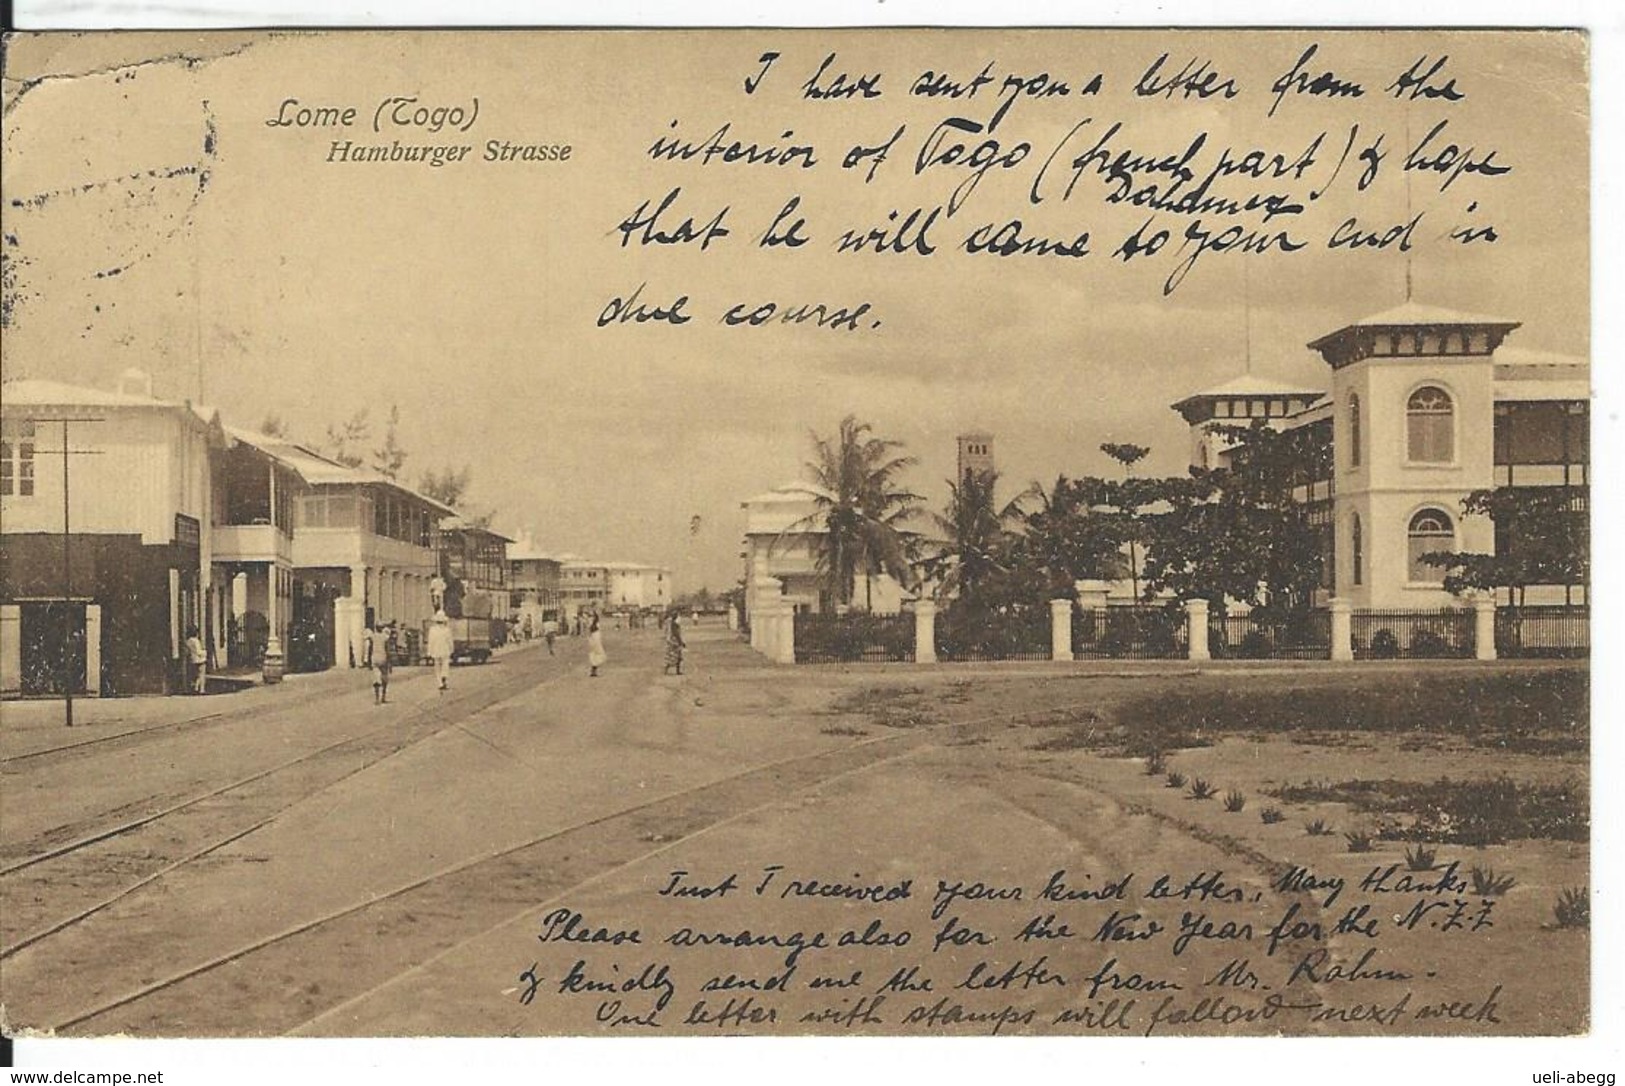 Lome (Togo)
Hamburger Strasse
I have sent you a letter from the
interior of Togo (french part) & hope
Dahomey
that he will come to your end in
due course.
Just I received your kind letter. Many thanks
Please arrange also for the New Year for the N.Z.Z
& kindly send me the letter from Mr. Rahm.
One letter with stamps will follow next week
delcampe.net
ueli-abegg